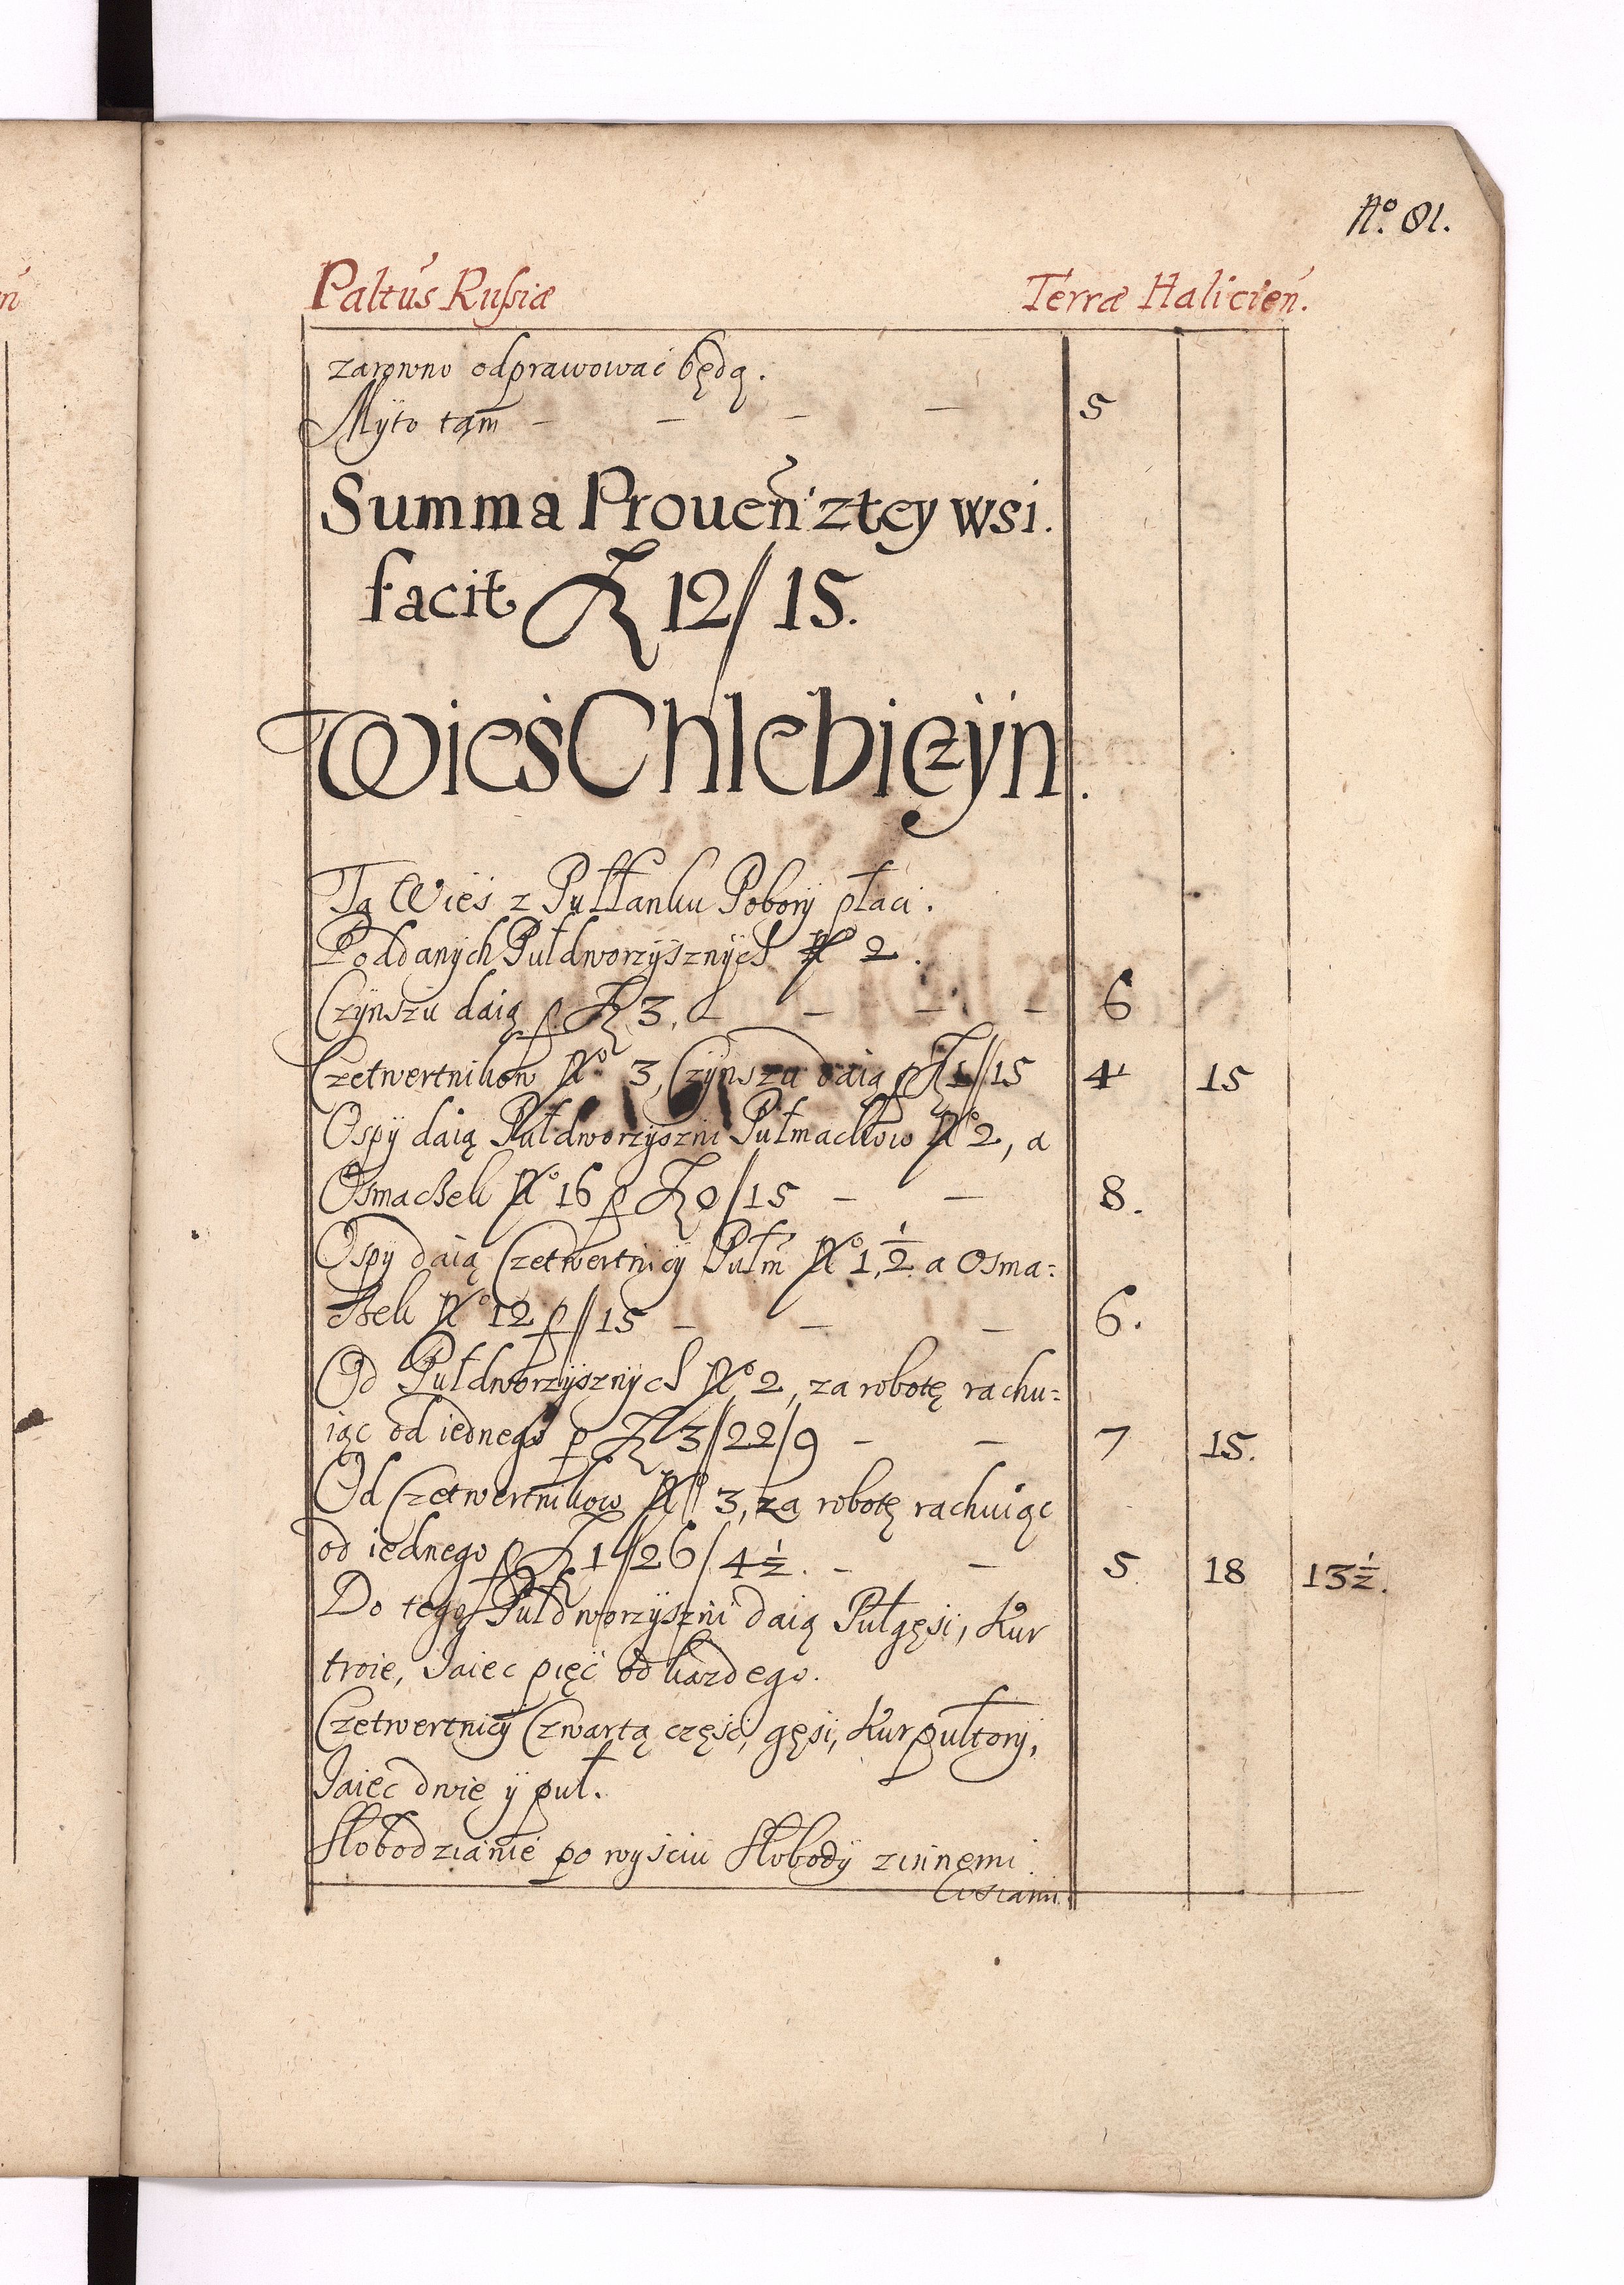 N.º 81.
Paltus Russiæ Terræ Halicień.
zarowno odprawować będą.
Mÿto tam - - - — 5
Summa Prouen̄ z tey wsi.
facit fl 12/15.
Wieś Chlebiczÿn.
Ta Wieś z Pułłanku Poborÿ płaci.
Poddanÿch Pułdworzÿsznÿch N 2.
Czÿnszu daią p. fl 3. - - - - 6
Czetwertnikow Nº 3, Czÿnszu daią p fl 1//15 4 15
Ospÿ daią Pułdworzyszni Pułmackow Nº 2, a
Osmaczek Nº 16 p fl 0/15 - — 8.
Ospÿ daią Czetwertnicÿ Pułm̄ Nº 1, 1/2 a Osma=
czek Nº 12 p //15 - - — 6.
Od Pułdworzÿsznÿch Nº 2, za robotę rachu=
iąc od iednego p fl 3//22/9 - — 7 15.
Od Czetwertnikow Nº 3, za robotę rachuiąc
od iednego p fl 1//26/4 1/2. - — 5 18 13 1/2.
Do tego Pułdworzÿszni daią Pułgęsi, Kur
troie, Jaiec pięć od kazdego.
Czetwertnicÿ Czwartą część, gęsi, Kur pułtorÿ,
Jaiec dwie ÿ puł.
Słobodzianie po wyściu Słobodÿ z innemi